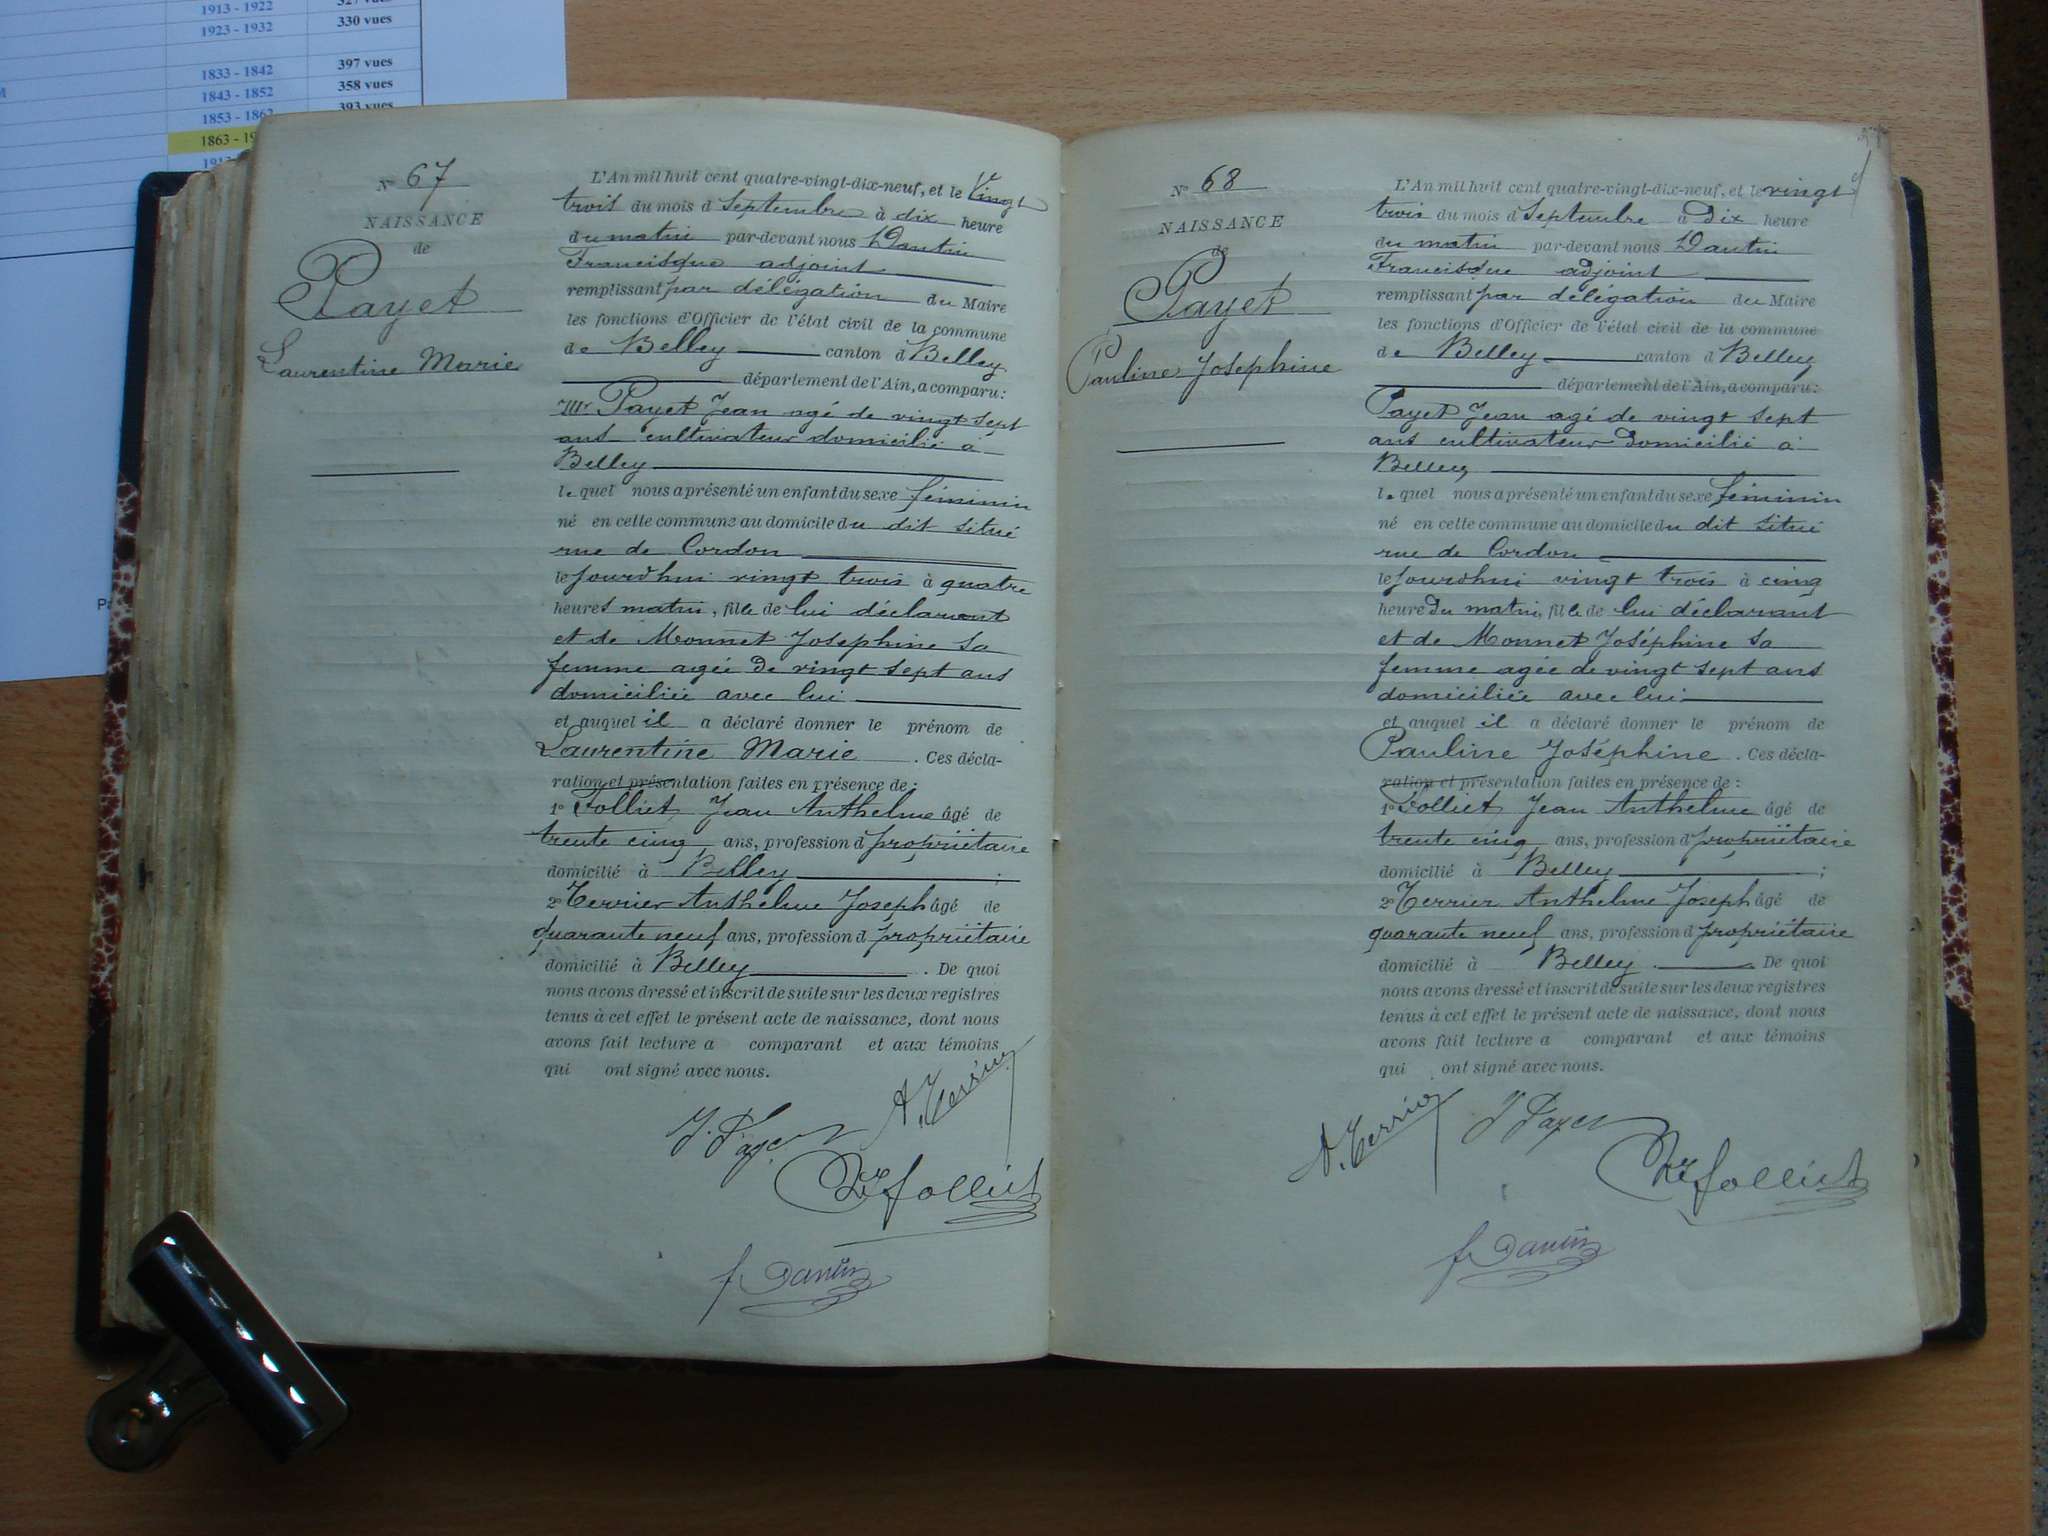 1913 - 1922 327 vues
1923 - 1932 330 vues
1833 - 1842 397 vues
1843 - 1852 358 vues
1853 - 1862 393 vues
1863 - 19
N° 67
NAISSANCE
de
Payet
Laurentine Marie
L'An mil huit cent quatre-vingt-dix-neuf, et le Vingt
trois du mois d Septembre à dix heure
du matin par-devant nous Dantin
Francisque adjoint
remplissant par délégation du Maire
les fonctions d'Officier de l'état civil de la commune
de Belley canton d Belley
département de l'Ain, a comparu:
Mr Payet Jean agé de vingt sept
ans cultivateur domicilié à
Belley
lequel nous a présenté un enfant du sexe féminin
né en cette commune au domicile du dit situé
rue de Cordon
le jourd'hui vingt trois à quatre
heures matin, fille de lui déclarant
et de Monnet Josephine sa
femme agée de vingt sept ans
domiciliée avec lui
et auquel il a déclaré donner le prénom de
Laurentine Marie. Ces décla-
ration et présentation faites en présence de:
1° Folliet Jean Anthelme âgé de
trente cinq ans, profession d propriétaire
domicilié à Belley ;
2° Terrier Anthelme Joseph âgé de
quarante neuf ans, profession d propriétaire
domicilié à Belley . De quoi
nous avons dressé et inscrit de suite sur les deux registres
tenus à cet effet le présent acte de naissance, dont nous
avons fait lecture a comparant et aux témoins
qui ont signé avec nous.
J. Payet A. Terrier
Folliet
f Dantin
N° 68
NAISSANCE
de
Payet
Pauline Josephine
L'An mil huit cent quatre-vingt-dix-neuf, et le vingt
trois du mois d Septembre à Dix heure
du matin par-devant nous Dantin
Francisque adjoint
remplissant par délégation du Maire
les fonctions d'Officier de l'état civil de la commune
de Belley canton d Belley
département de l'Ain, a comparu:
Payet Jean agé de vingt sept
ans cultivateur domicilié à
Belley
lequel nous a présenté un enfant du sexe féminin
né en cette commune au domicile du dit situé
rue de Cordon
le jourd'hui vingt trois à cinq
heure du matin, fille de lui déclarant
et de Monnet Joséphine sa
femme agée de vingt sept ans
domiciliée avec lui
et auquel il a déclaré donner le prénom de
Pauline Joséphine. Ces décla-
ration et présentation faites en présence de:
1° Folliet Jean Anthelme âgé de
trente cinq ans, profession d propriétaire
domicilié à Belley ;
2° Terrier Anthelme Joseph âgé de
quarante neuf ans, profession d propriétaire
domicilié à Belley . De quoi
nous avons dressé et inscrit de suite sur les deux registres
tenus à cet effet le présent acte de naissance, dont nous
avons fait lecture a comparant et aux témoins
qui ont signé avec nous.
A. Terrier J Payet
Folliet
f Dantin